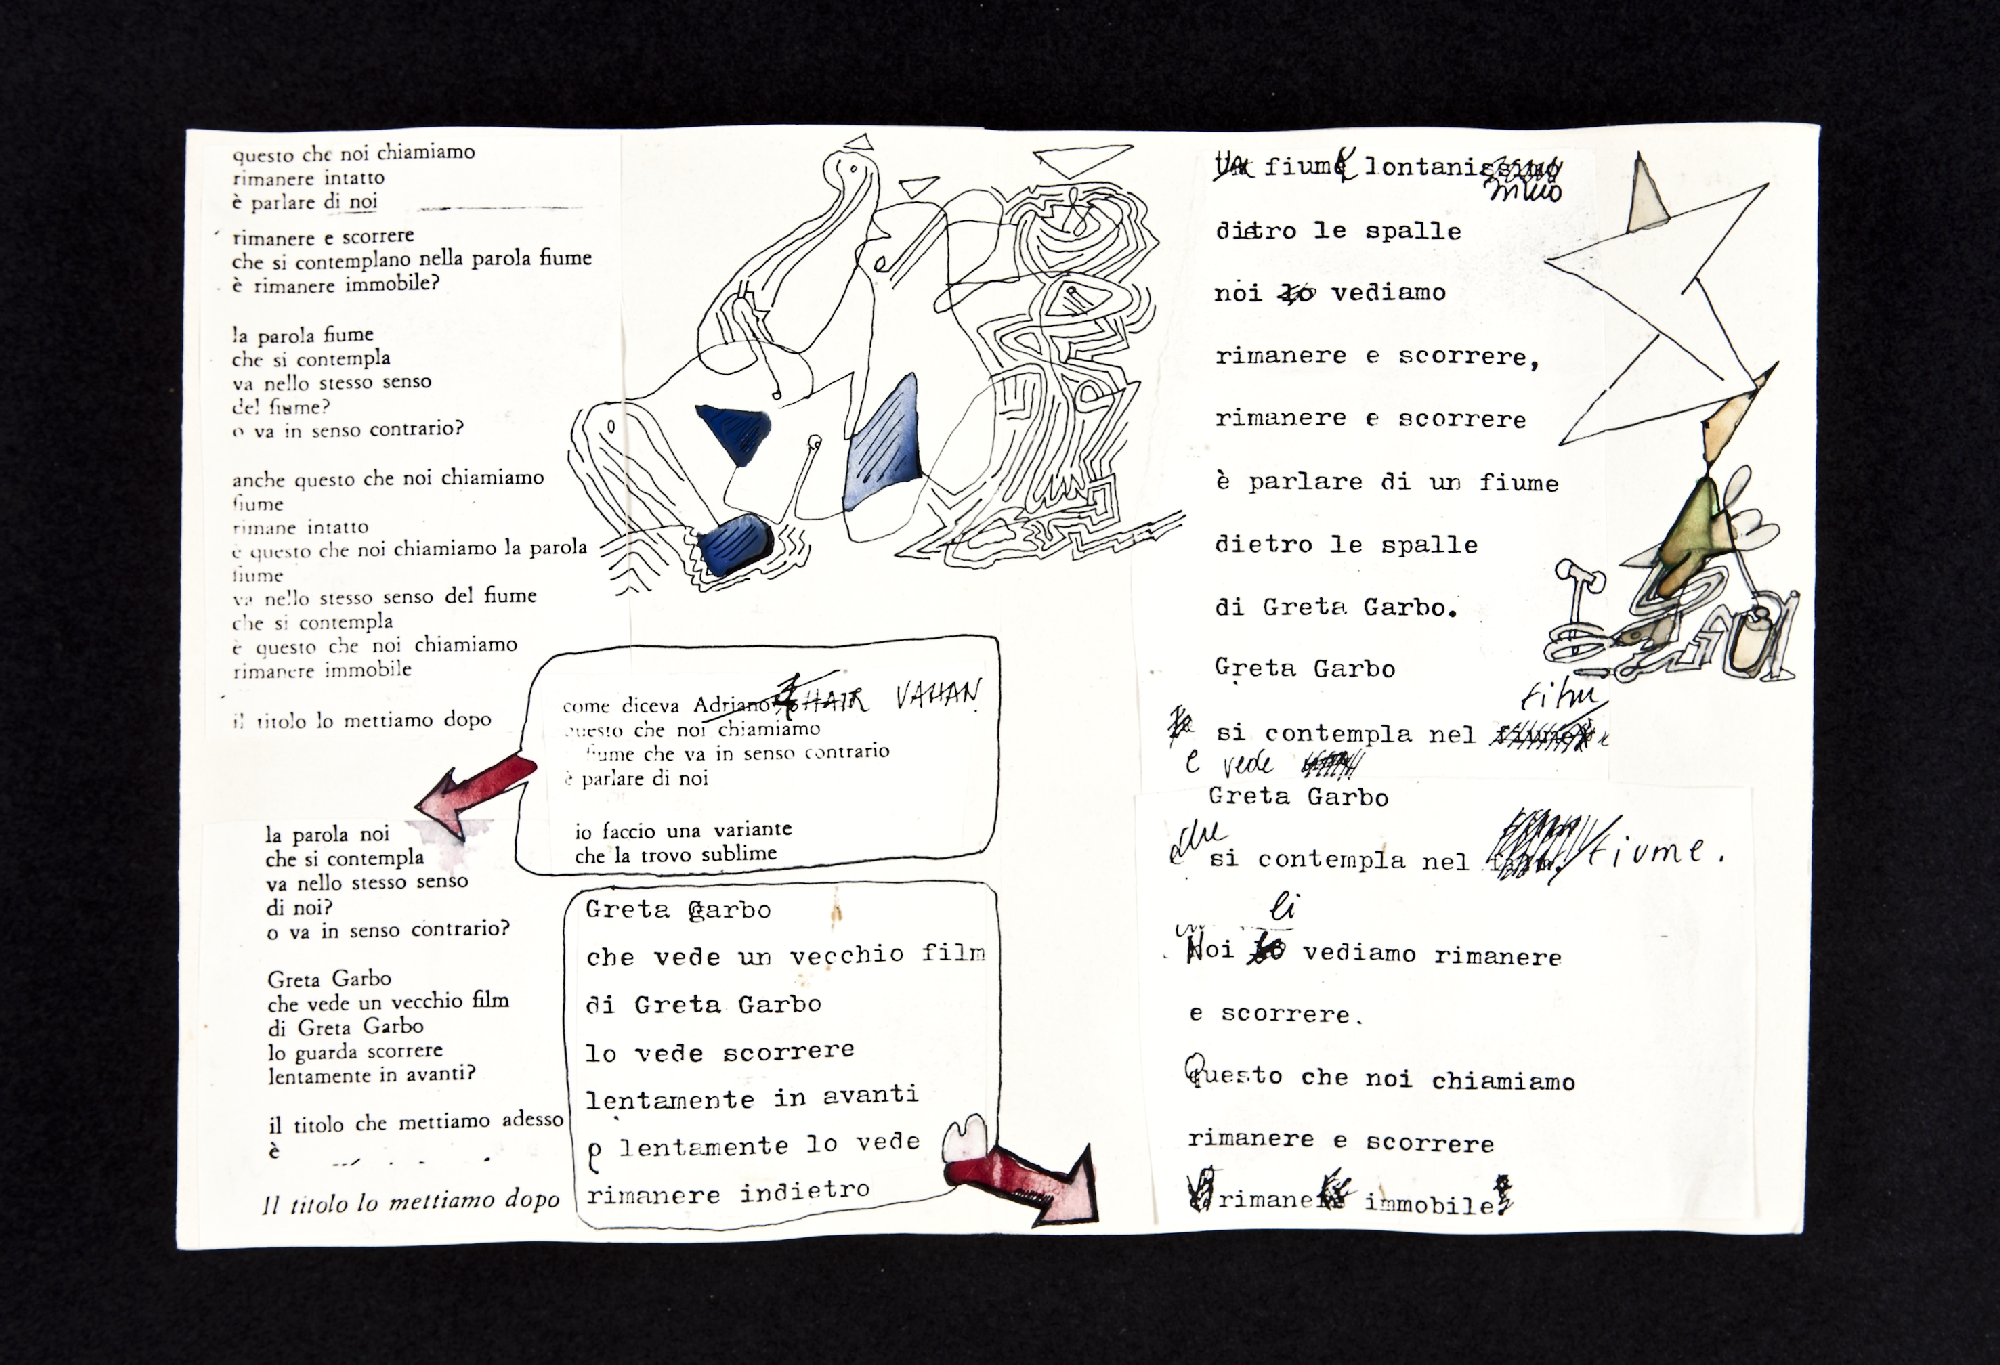 questo che noi chiamiamo
rimanere intatto
è parlare di noi
rimanere e scorrere
che si contemplano nella parola fiume
è rimanere immobile?
la parola fiume
che si contempla
va nello stesso senso
del fiume?
o va in senso contrario?
anche questo che noi chiamiamo
fiume
rimane intatto
e questo che noi chiamiamo la parola
fiume
va nello stesso senso del fiume
che si contempla
è questo che noi chiamiamo
rimanere immobile
il titolo lo mettiamo dopo
la parola noi
che si contempla
va nello stesso senso
di noi?
o va in senso contrario?
Greta Garbo
che vede un vecchio film
di Greta Garbo
lo guarda scorrere
lentamente in avanti?
il titolo che mettiamo adesso
è
Il titolo lo mettiamo dopo
come diceva Adriano VAHAN
questo che noi chiamiamo
fiume che va in senso contrario
è parlare di noi
io faccio una variante
che la trovo sublime
Greta Garbo
che vede un vecchio film
di Greta Garbo
lo vede scorrere
lentamente in avanti
e lentamente lo vede
rimanere indietro
fiume lontanissimo
dietro le spalle
noi lo vediamo
rimanere e scorrere,
rimanere e scorrere
è parlare di un fiume
dietro le spalle
di Greta Garbo.
Greta Garbo
film
si contempla nel
e vede
Greta Garbo
che
si contempla nel fiume.
li
Noi vediamo rimanere
e scorrere.
Questo che noi chiamiamo
rimanere e scorrere
rimane immobile